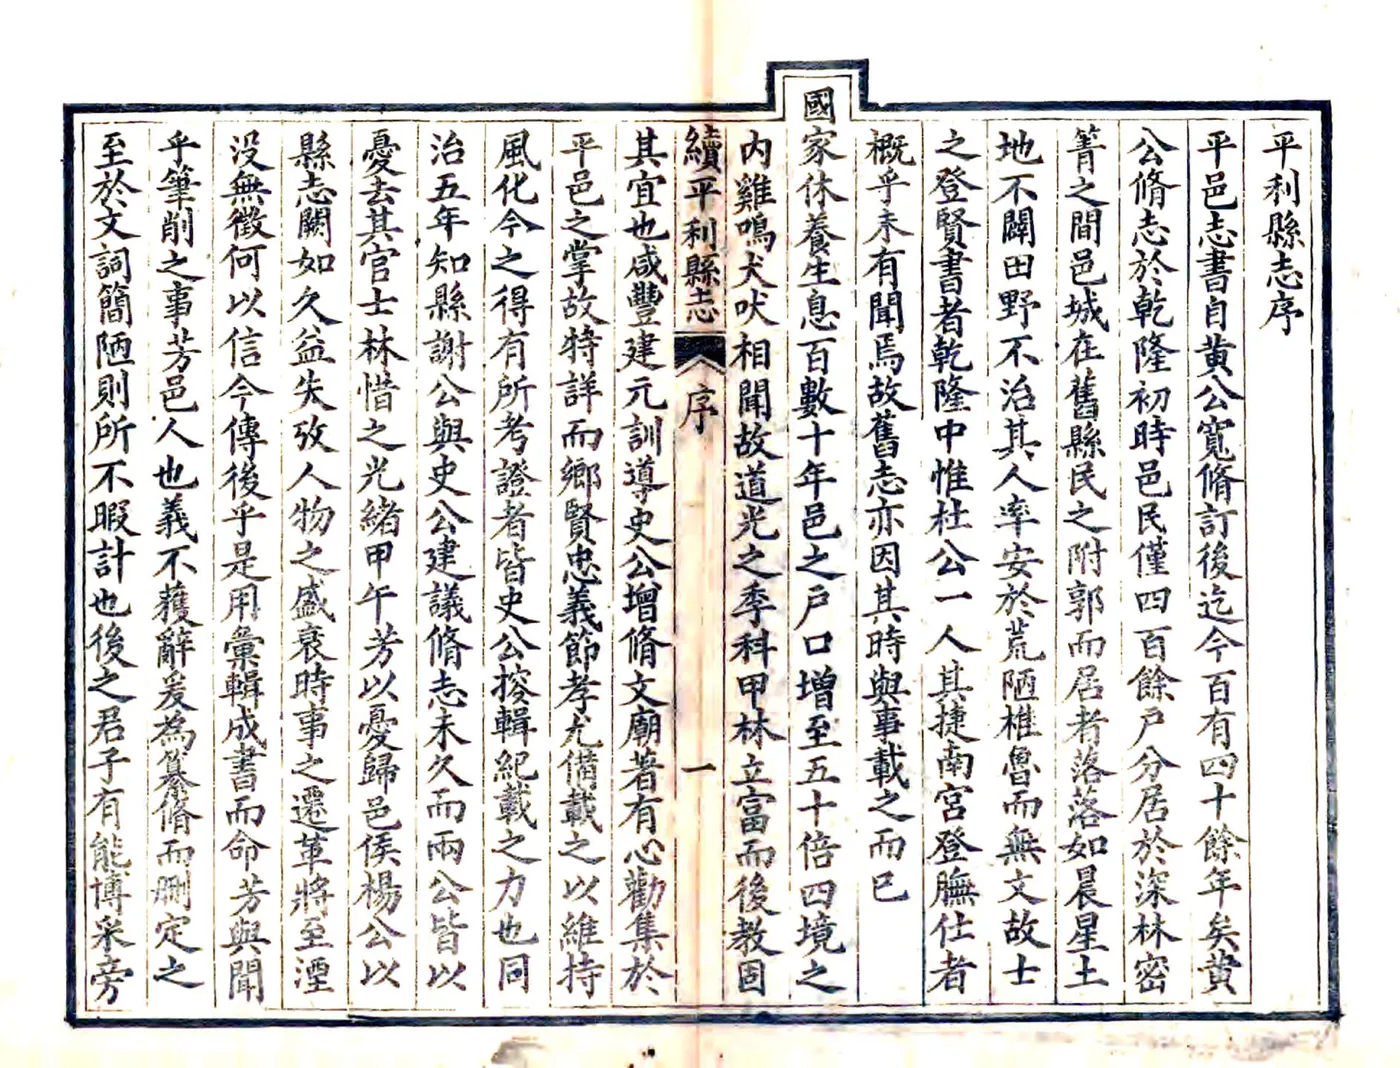 平利縣志序
平邑志書自黄公寬脩訂後迄今百有四十餘年矣黄
公脩志於乾隆初時邑民僅四百餘戸分居於深林密
箐之間邑城在舊縣民之附郭而居者落落如晨星土
地不闢田野不治其人率安於荒陋椎魯而無文故士
之登賢書者乾隆中惟杜公一人其捷南宮登膴仕者
概乎未有聞焉故舊志亦因其時與事載之而已
國家休養生息百數十年邑之戸口增至五十倍四境之
内雞鳴犬吠相聞故道光之季科甲林立富而後教固
續平利縣志 序 一
其宜也咸豐建元訓導史公增脩文廟著有心勸集於
平邑之掌故特詳而鄉賢忠義節孝尤備載之以維持
風化今之得有所考證者皆史公搈輯紀載之力也同
治五年知縣謝公與史公建議脩志未久而兩公皆以
憂去其官士林惜之光緒甲午芳以憂歸邑侯楊公以
縣志闕如久益失攷人物之盛衰時事之遷革將至湮
没無徵何以信今傳後乎是用彙輯成書而命芳與聞
乎筆削之事芳邑人也義不獲辭爰為纂脩而刪定之
至於文詞簡陋則所不暇計也後之君子有能博采旁